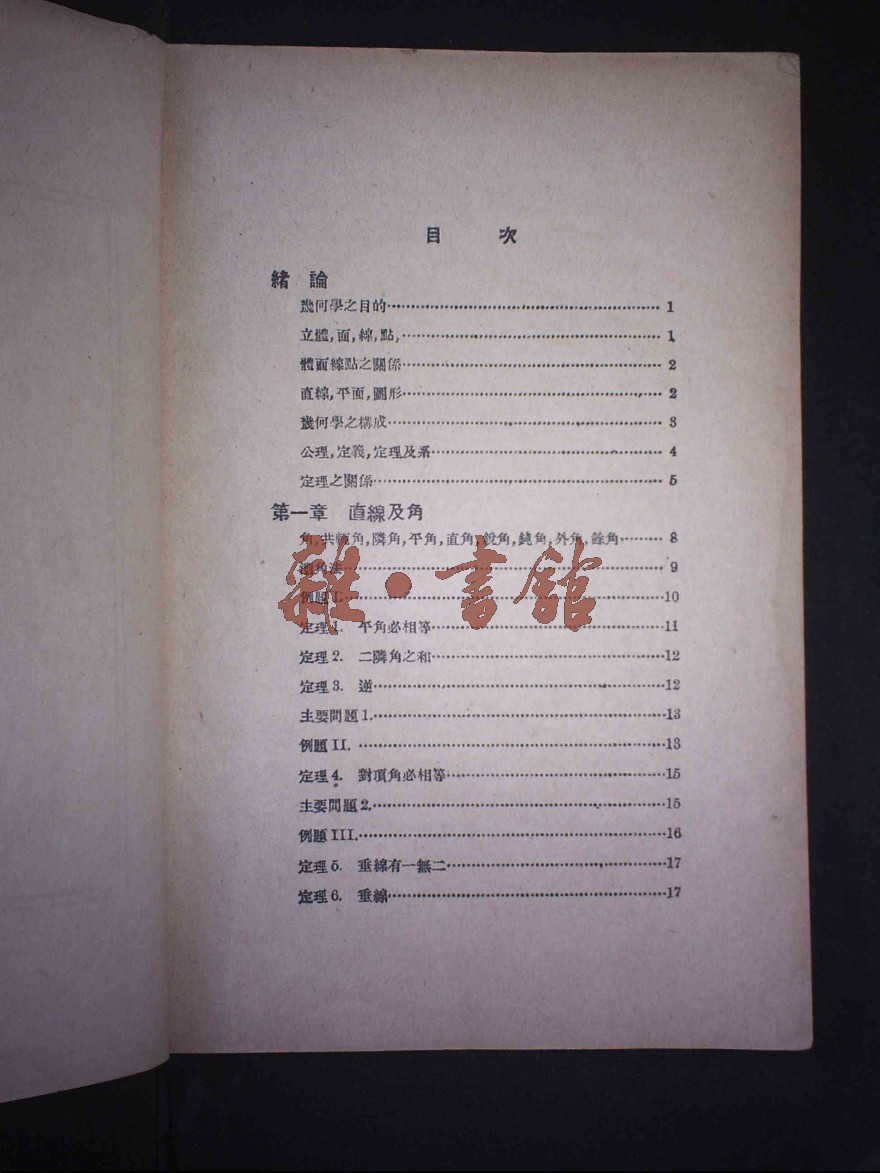 目　次
緒　論
幾何學之目的……………………………………1
立體,面,線,點,……………………………………1
體面線點之關係……………………………………2
直線,平面,圖形……………………………………2
幾何學之構成……………………………………3
公理,定義,定理及系……………………………………4
定理之關係……………………………………5
第一章　直線及角
角,共軛角,隣角,平角,直角,銳角,鈍角,外角,餘角………8
測角法……………………………………9
例題 I.……………………………………10
定理 1.　平角必相等……………………………………11
定理 2.　二隣角之和……………………………………12
定理 3.　逆……………………………………12
主要問題 1.……………………………………13
例題 II.……………………………………13
定理 4.　對頂角必相等……………………………………15
主要問題 2.……………………………………15
例題 III.……………………………………16
定理 5.　垂線有一無二……………………………………17
定理 6.　垂線……………………………………17
雜·書館